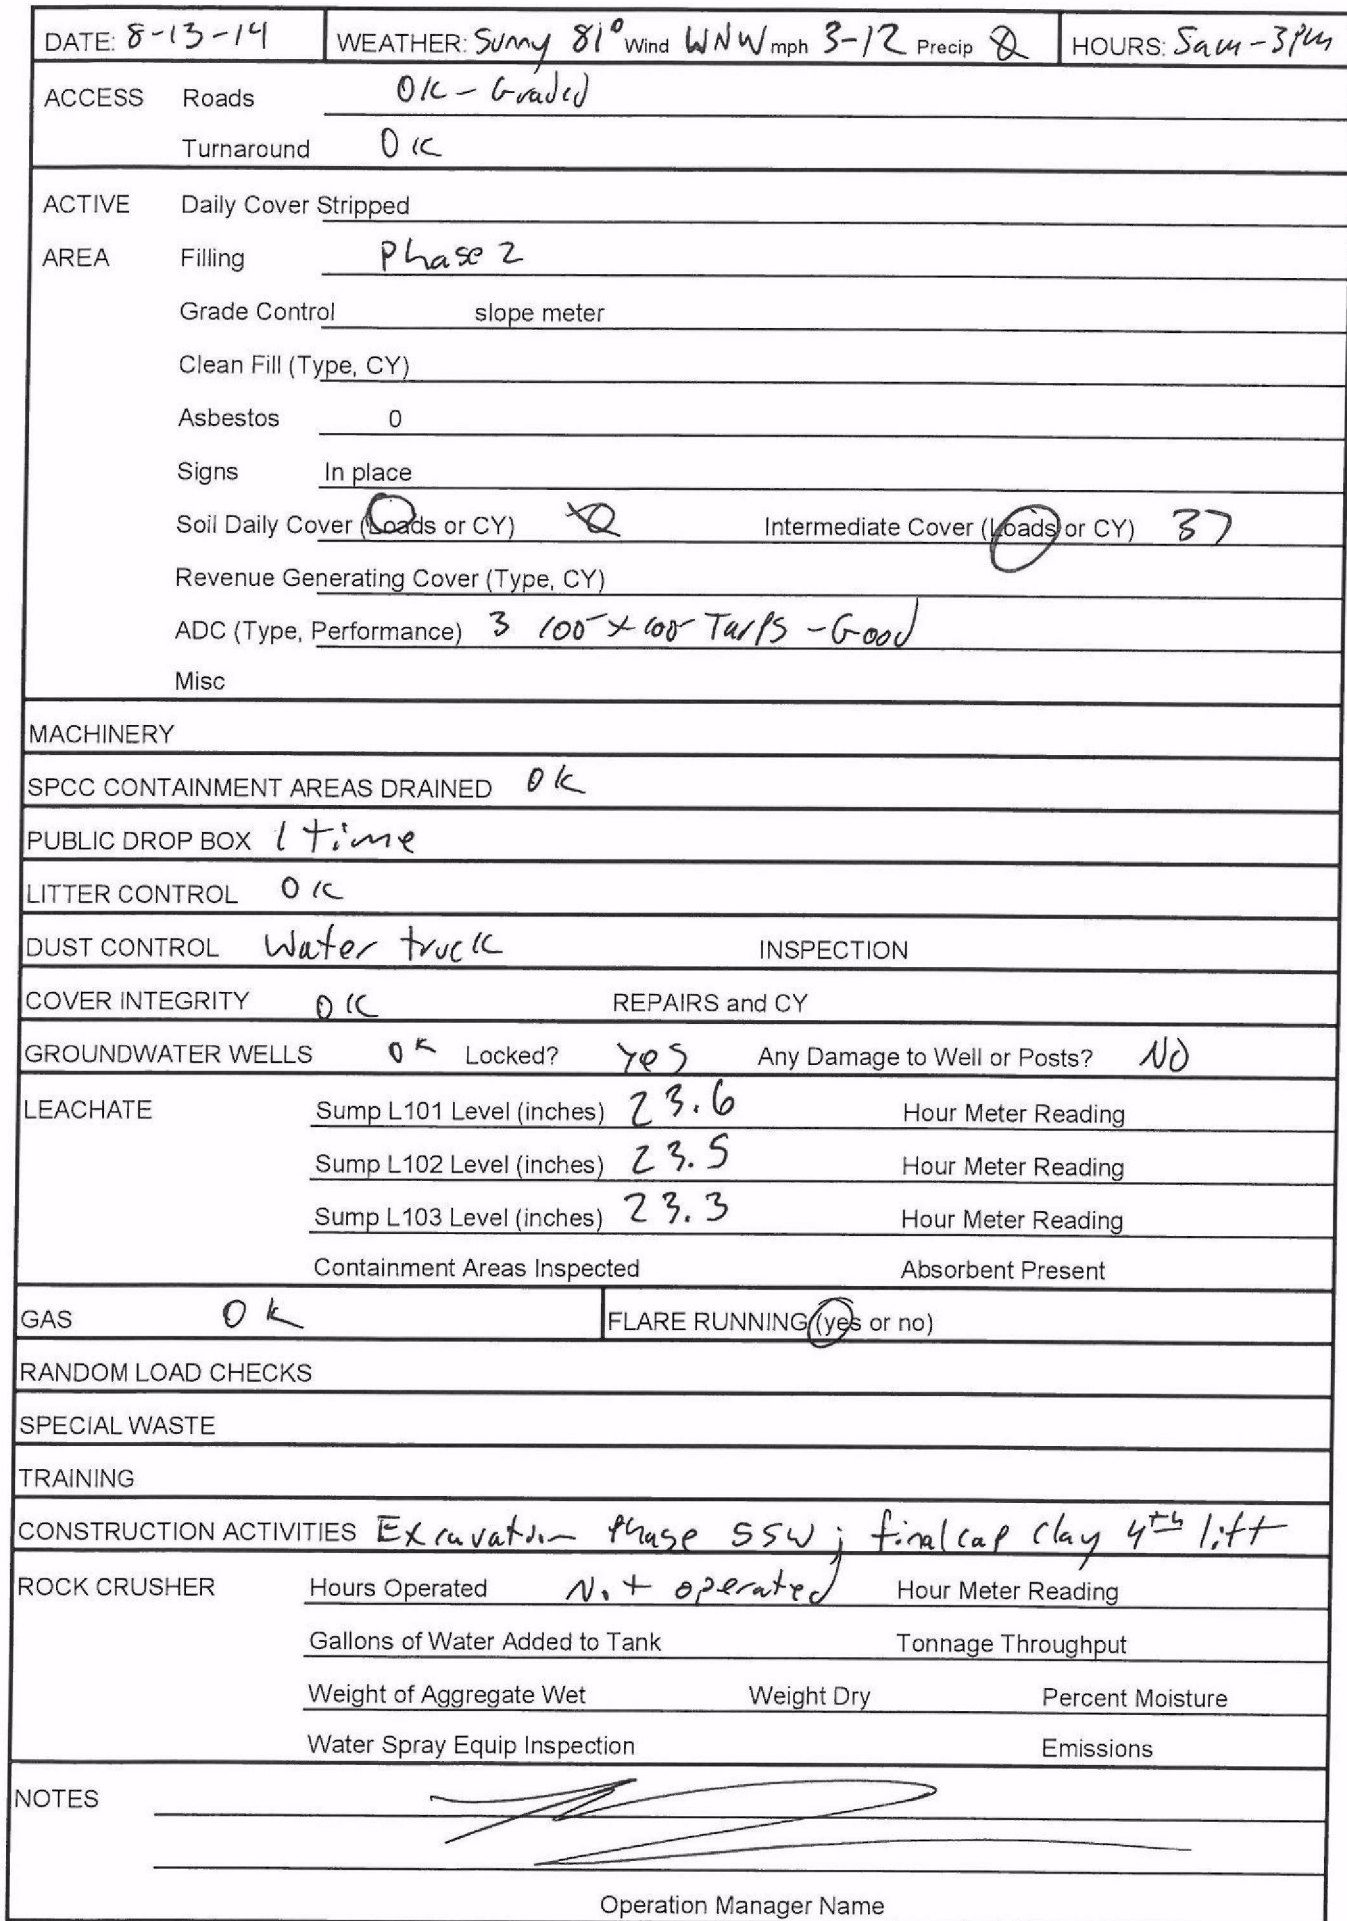 DATE: 8-13-14 WEATHER: Sunny 81° Wind WNW mph 3-12 Precip 0 HOURS: 5am-3pm
ACCESS Roads OK - Graded
Turnaround OK
ACTIVE Daily Cover Stripped
AREA Filling Phase 2
Grade Control slope meter
Clean Fill (Type, CY)
Asbestos 0
Signs In place
Soil Daily Cover (Loads or CY) 0 Intermediate Cover (Loads or CY) 37
Revenue Generating Cover (Type, CY)
ADC (Type, Performance) 3 Tarps - Good
Misc
MACHINERY
SPCC CONTAINMENT AREAS DRAINED OK
PUBLIC DROP BOX 1 time
LITTER CONTROL OK
DUST CONTROL Water truck INSPECTION
COVER INTEGRITY OK REPAIRS and CY
GROUNDWATER WELLS OK Locked? Yes Any Damage to Well or Posts? NO
LEACHATE Sump L101 Level (inches) 23.6 Hour Meter Reading
Sump L102 Level (inches) 23.5 Hour Meter Reading
Sump L103 Level (inches) 23.3 Hour Meter Reading
Containment Areas Inspected Absorbent Present
GAS OK FLARE RUNNING (yes or no)
RANDOM LOAD CHECKS
SPECIAL WASTE
TRAINING
CONSTRUCTION ACTIVITIES Excavation Phase 5SW; final cap clay 4th lift
ROCK CRUSHER Hours Operated Not operated Hour Meter Reading
Gallons of Water Added to Tank Tonnage Throughput
Weight of Aggregate Wet Weight Dry Percent Moisture
Water Spray Equip Inspection Emissions
NOTES
Operation Manager Name